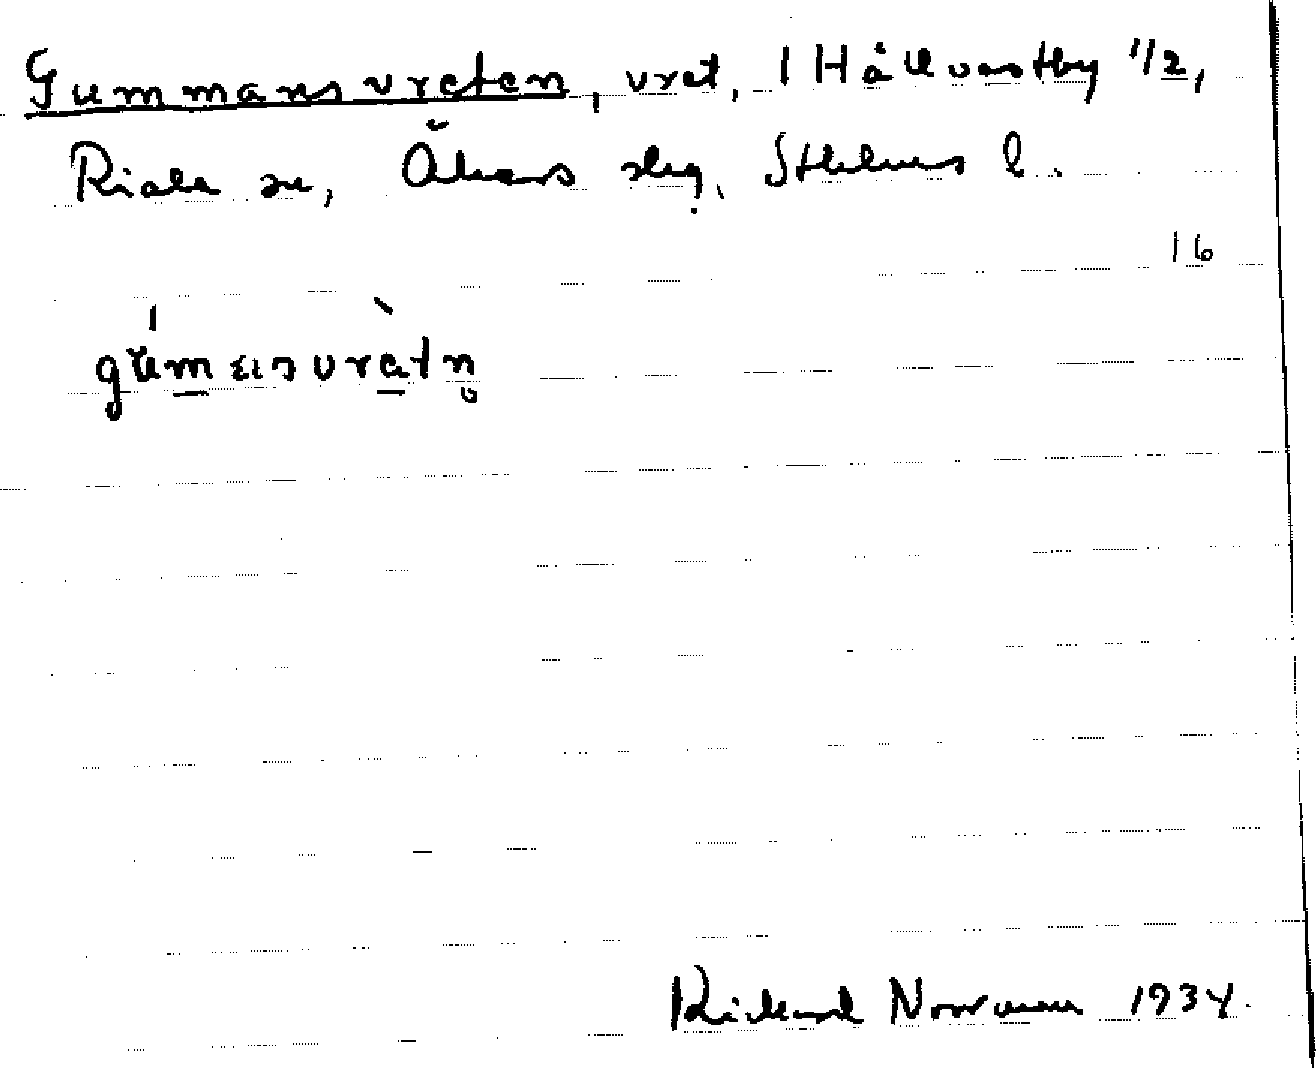 Gummansvreten, vret, 1 Hållvastby 1/2,
Riala sn, Åkers skg, Sthlms l.
16
gùmansvrètn̥
Rickard Norrman 1934.